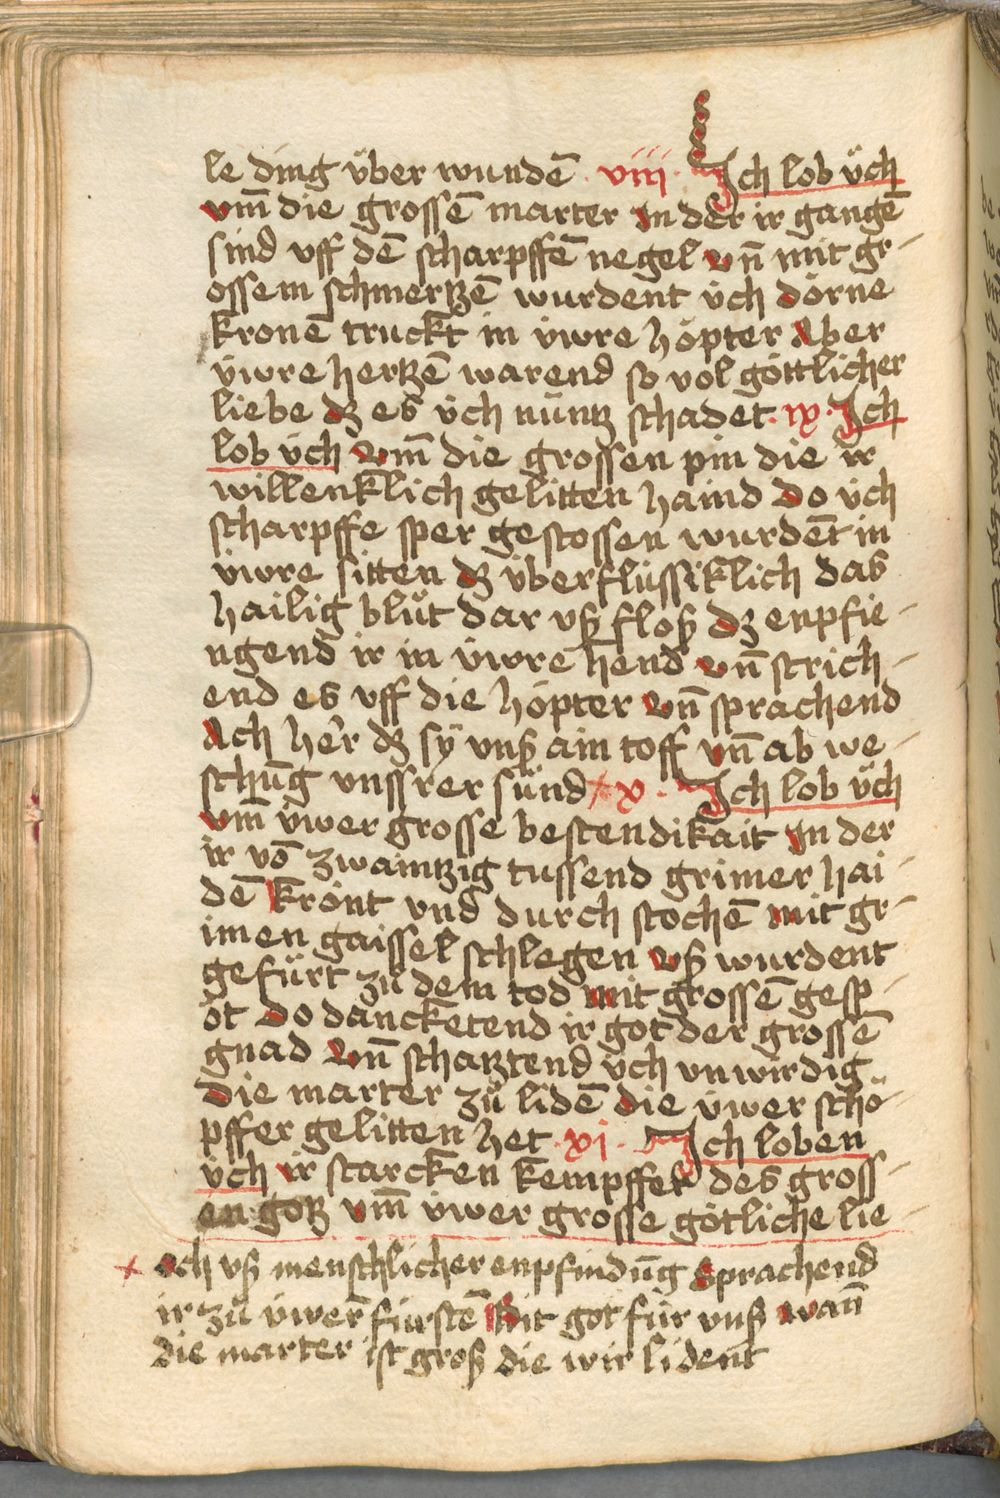 le ding über wundē · viij · Ich lob üch
vm̄ die grossē marter In der ir gangē
sind vff dē scharpffē negel vn̄ mit gr-
ossem schmertzē wurdent üch dörne
kronē truckt in üwre höpter Aber
üwre hertzē warend so vol göttlicher
liebe dz es üch nüntz schadet · ix · Ich
lob üch vm̄ die grossen pin die ir
willenklich gelitten haind Do üch
scharpffe sper gestossen wurdēt in
üwre sitten dz überflüssiklich das
hailig blůt dar vß floß dz enpfie-
ngend ir in üwre hend vn̄ strich-
end es vff die höpter vn̄ sprachend
Ach her dz sÿ vnß ain toff vn̄ ab we-
schūg vnssrer sünd + x · Ich lob üch
vm̄ üwer grosse bestendikait In der
ir vō zwaintzig tussend grimer hai-
dē krönt vnd durch stochē mit gr-
imen gaissel schlegen vß wurdent
gefürt zů dem tod mit grossē gesp-
öt Do danckētend ir got der grossē
gnad vn̄ schatztend üch vnwirdig
die marter zů lidē die üwer schö-
pffer gelitten het · xi · Ich loben
üch ir starcken kempffer des gross-
en gotz vm̄ üwer grosse götliche lie-
+ och vß menschlicher enpfindūg sprachend
ir zů üwer fürstē Bit got für vnß wan̄
die marter ist groß die wir lident